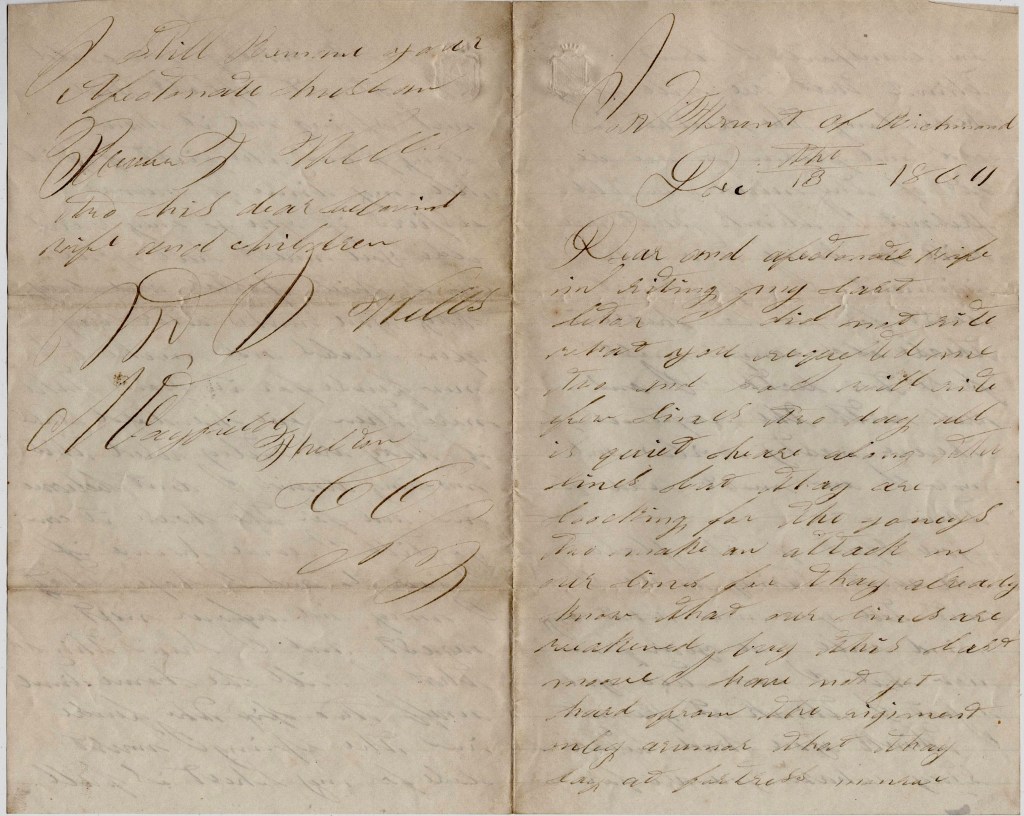 I Still Remane your
Afectionate husban
Reuben D Wells
two his dear belovid
wife and children
R D Wells
Mayfield
Fulton
CO
NY
In Frunt of Richmond
Dec the 13 1864
Dear and afectionate Wife
in riting my last
letar I did not rite
what you reques ted me
two and will rite
few lines two day all
is quiet heare along the
lines but thay are
loocking for the yoneys
two make an attack on
our lines for thay already
know that our lines are
weakened buy this last
moove I have not yet
hard from the rigment
only arumor that thay
lay at fortress monroe